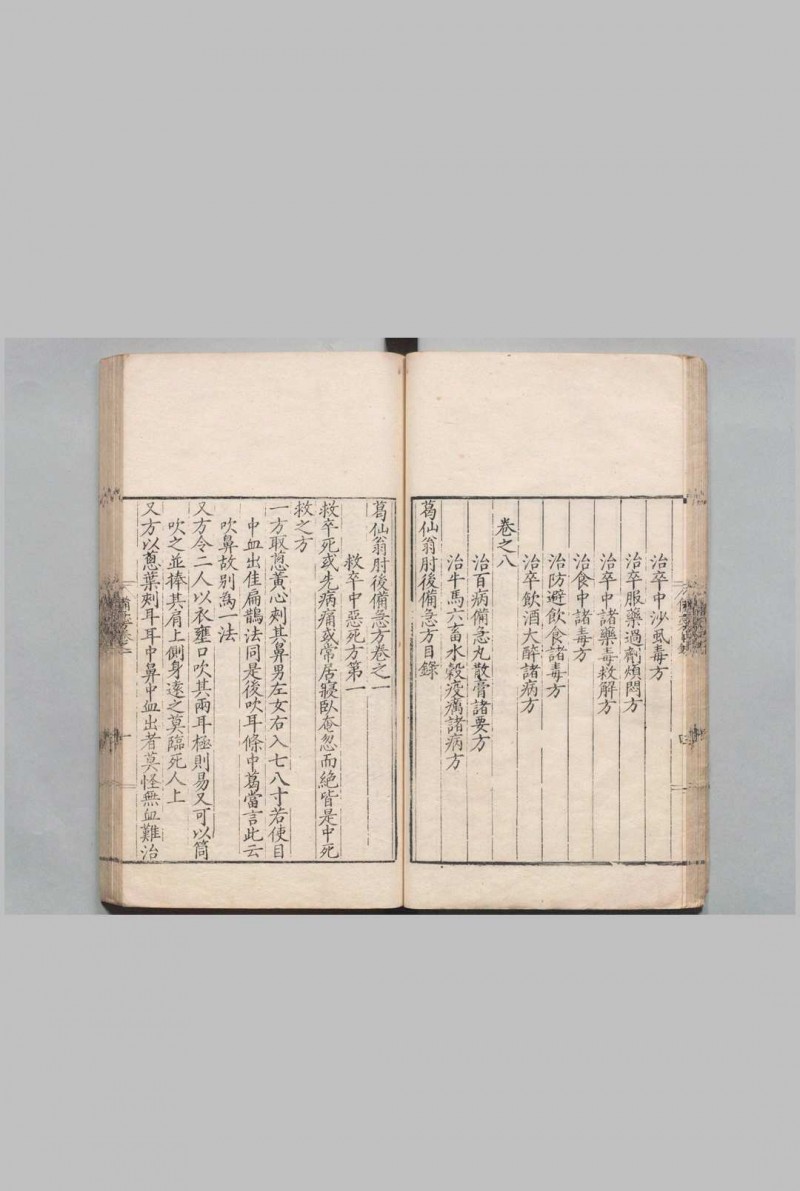 治卒中沙虱毒方
治卒服藥過劑煩悶方
治卒中諸藥毒救解方
治食中諸毒方
治防避飲食諸毒方
治卒飲酒大醉諸病方
卷之八
治百病備急丸散膏諸要方
治牛馬六畜水穀疫癘諸病方
葛仙翁肘後備急方目錄
葛仙翁肘後備急方卷之一
救卒中惡死方第一
救卒死或先病痛或常居寢臥奄忽而絕皆是中死
救之方
一方取葱黃心刾其鼻男左女右入七八寸若使目
中血出佳扁鵲法同是後吹耳條中葛當言此云
吹鼻故別為一法
又方令二人以衣壅口吹其兩耳極則易又可以筒
吹之並捧其肩上側身遠之莫臨死人上
又方以葱葉刾耳耳中鼻中血出者莫怪無血難治